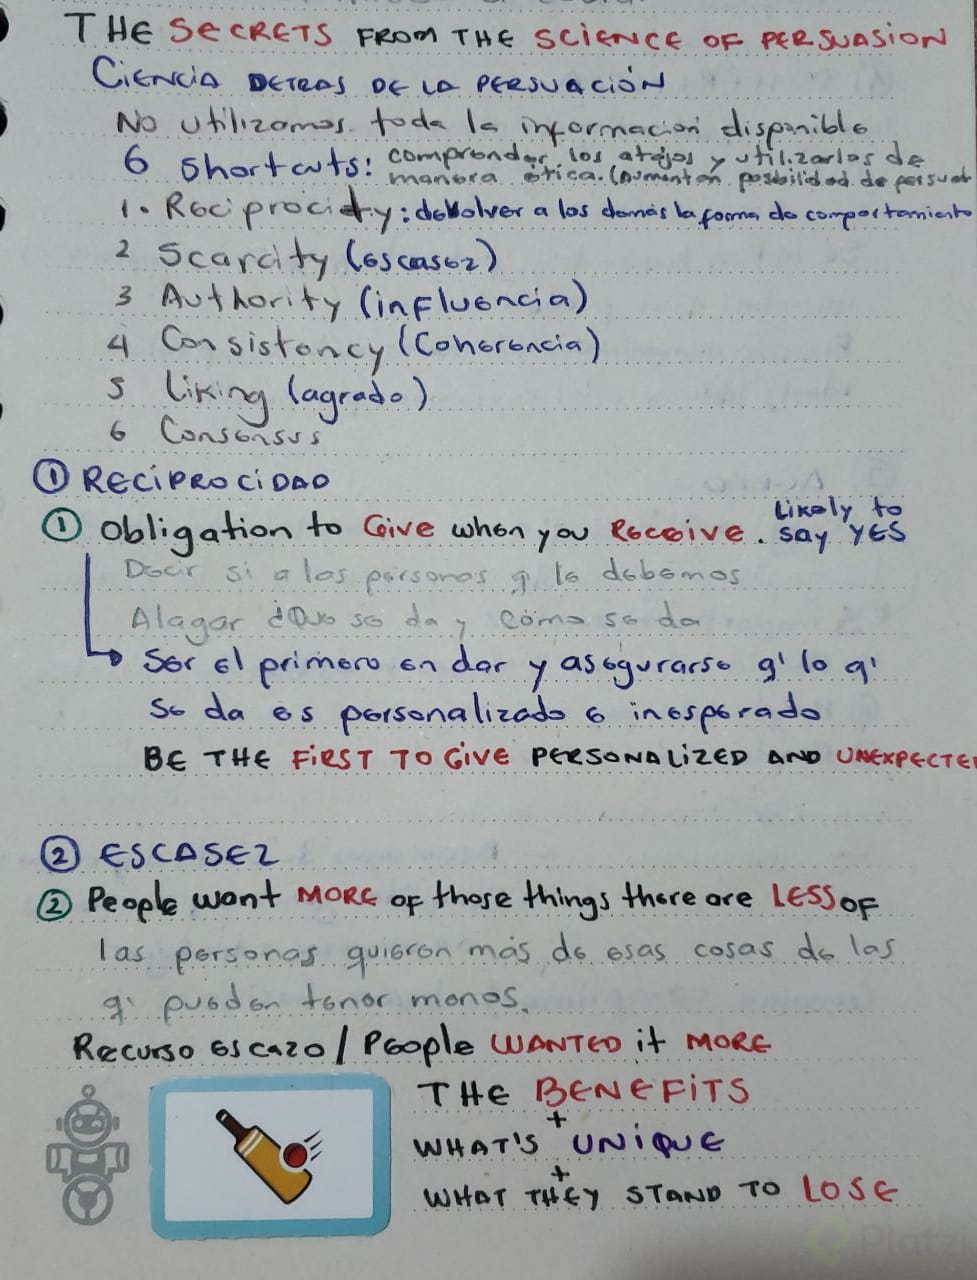 THE SECRETS FROM THE SCIENCE OF PERSUASION
CIENCIA DETRAS DE LA PERSUACIÓN
No utilizamos toda la información disponible
6 Shortcuts: comprender los atajos y utilizarlos de
manera ética. (Aumentan posibilidad de persuat
1. Reciprocidty: devolver a los demás la forma de comportamiento
2 Scarcity (escasez)
3 Authority (influencia)
4 Consistency (Coherencia)
5 Liking (agrado)
6 Consensus
① RECIPROCIDAD
① Obligation to Give when you Receive. Likely to say YES
Decir si a las personas q le debemos
Alagar ¿Que se da y como se da
Ser el primero en dar y asegurarse q' lo q'
se da es personalizado e inesperado
BE THE FIRST TO GIVE PERSONALIZED AND UNEXPECTE
② ESCASEZ
② People want MORE of those things there are LESS OF
las personas quieren más de esas cosas de las
q' pueden tener menos.
Recurso escazo / People WANTED it MORE
THE BENEFITS
+
WHAT'S UNIQUE
+
WHAT THEY STAND TO LOSE
Platzi